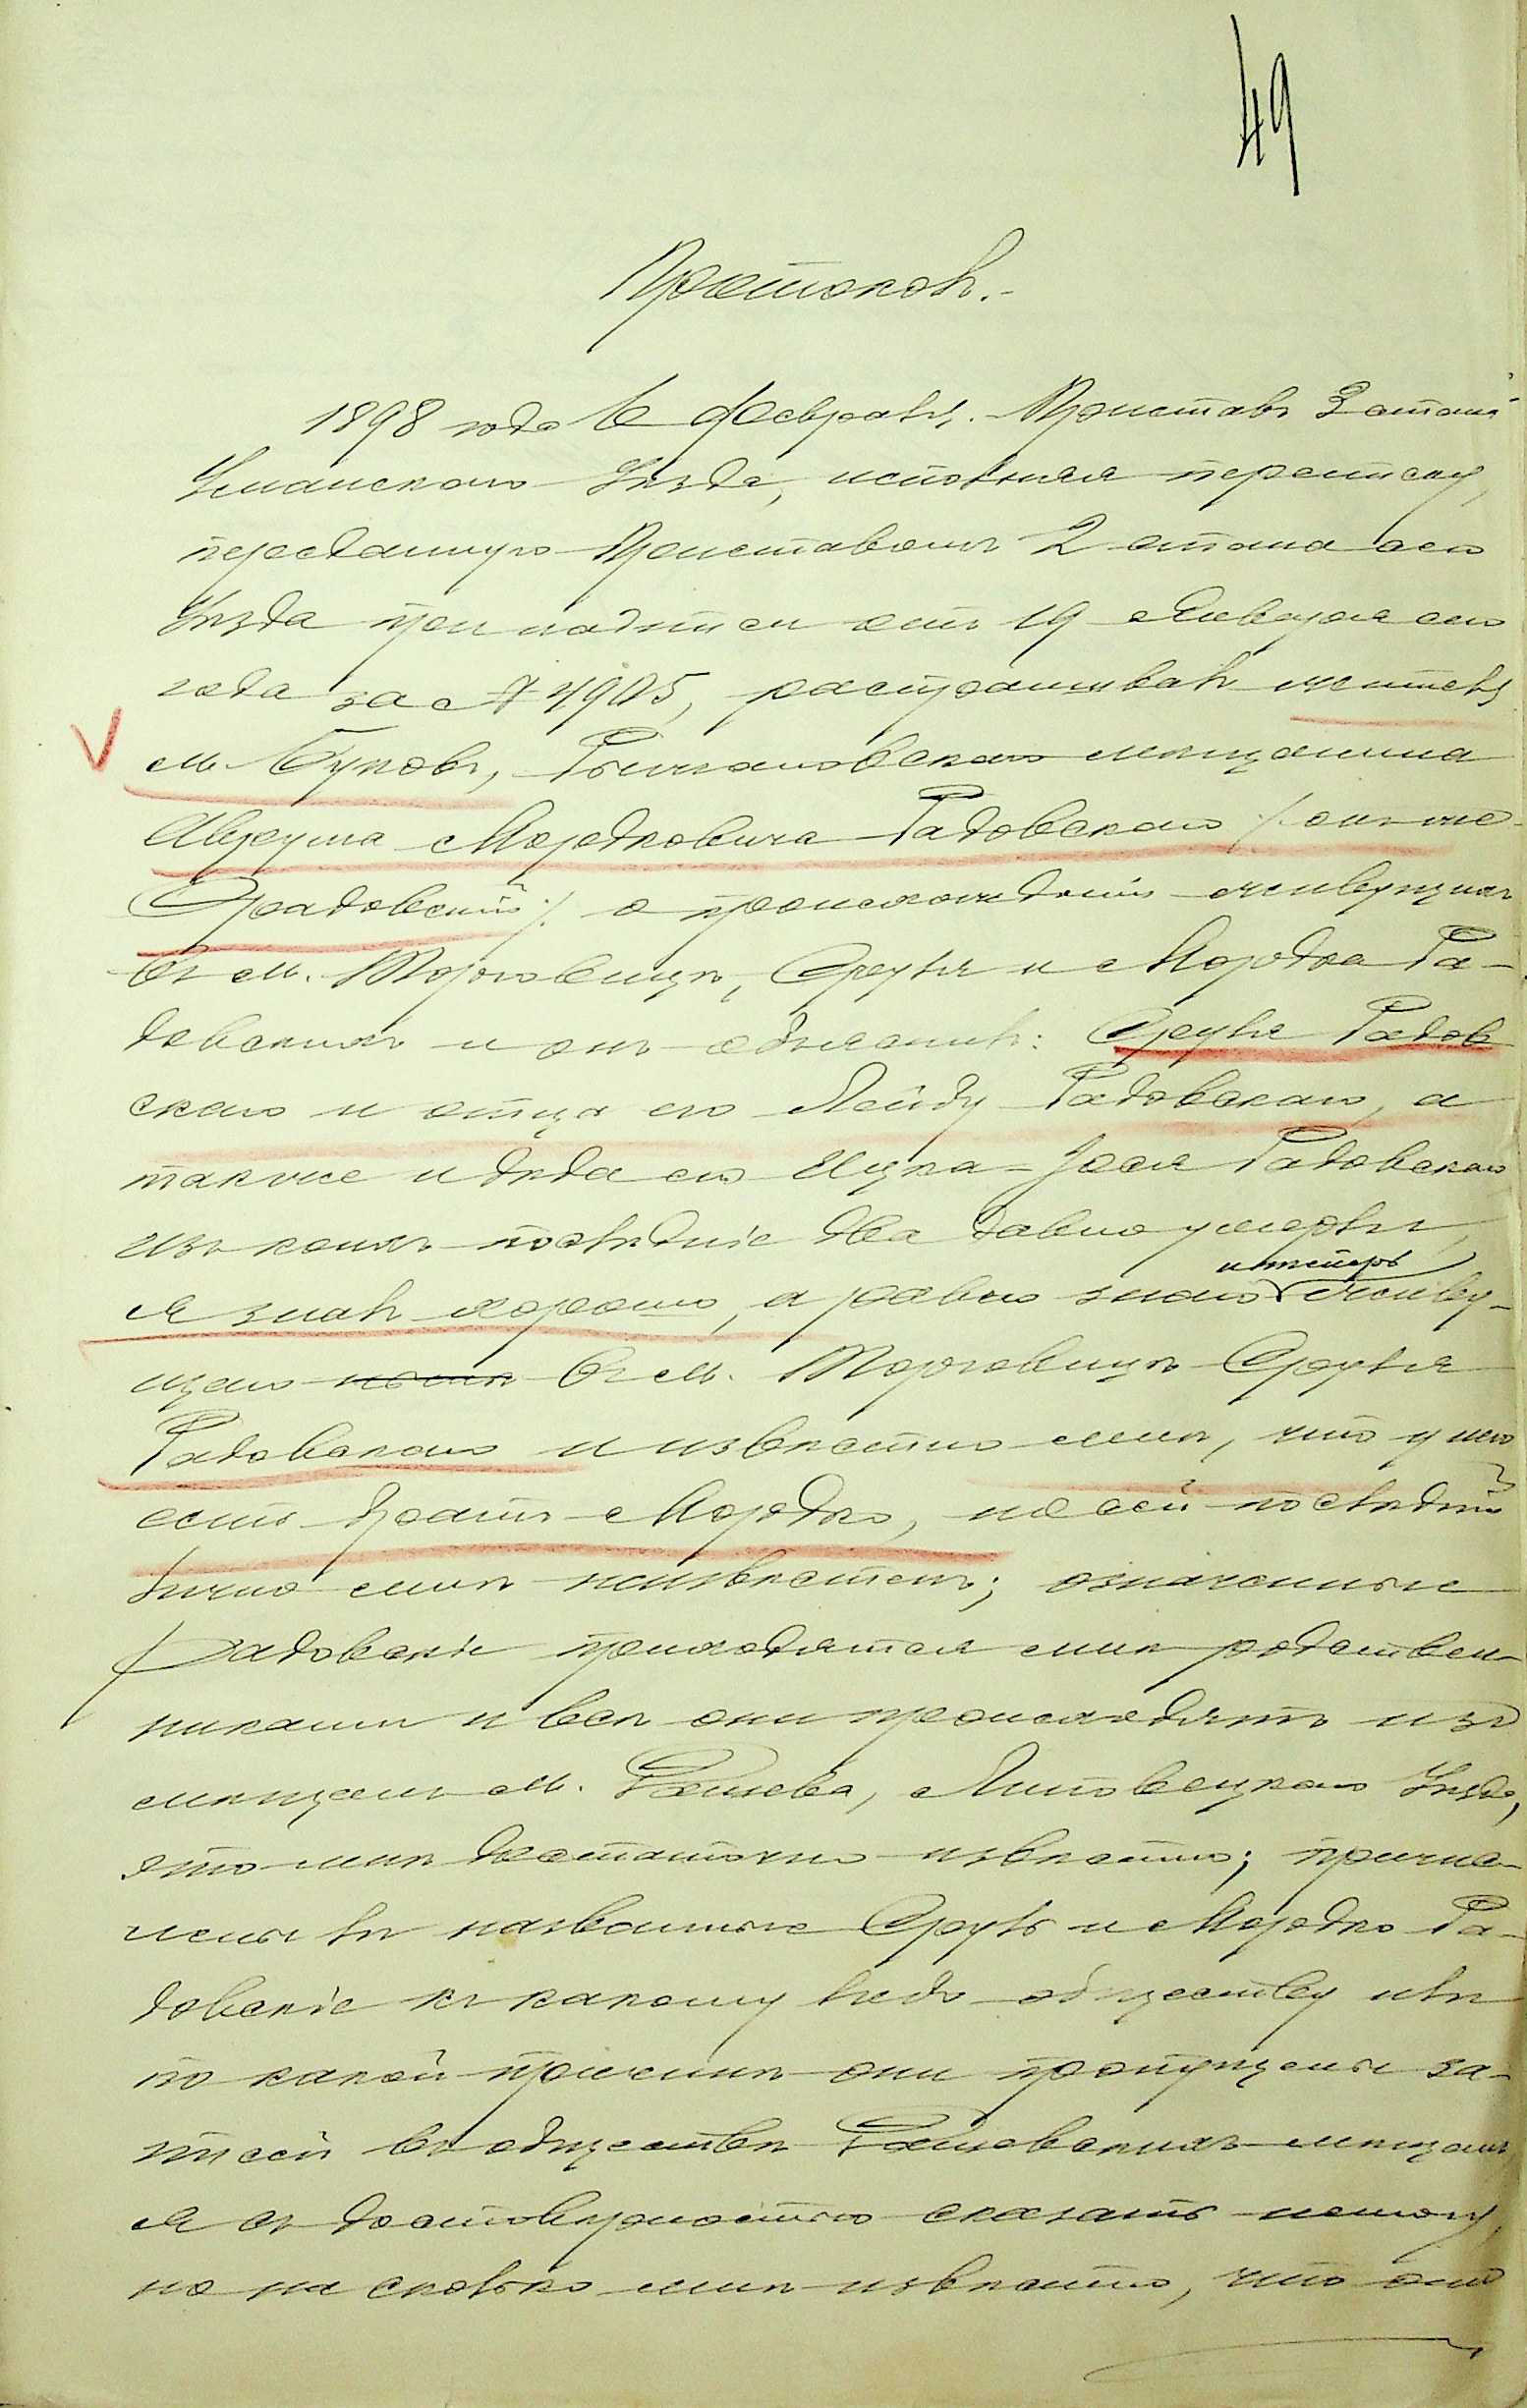 49
Протоколъ.-
1898 года 10 февраля. Приставъ 3 стана
Уманскаго Уѣзда, исполняя переписку,
переданную Приставомъ 2 стана сего
Уѣзда при надписи отъ 19 Января сего
года за № 4905, распрашивалъ жителя
м. Буковъ, мѣщанина
Аврума Мордковича Радовскаго /онъ же
Орадовскій/ о происхожденіи живущихъ
въ м. Торговицѣ, Сруля и Мордка Ра-
довскихъ и онъ объяснилъ: Сруля Радов
скаго и отца его Лейбу Радовскаго, а
также и дѣда его Ицка-Іося Радовскаго
изъ коихъ послѣдніе два давно умерли,
я зналъ хорошо, а равно знаю и теперь живу-
щаго въ м. Торговицѣ Сруля
Радовскаго и извѣстно мнѣ, что у него
есть братъ Мордко, но сей послѣдній
лично мнѣ неизвѣстенъ; означенные
Радовскіе приходятся мнѣ родствен-
никами и всѣ они происходятъ изъ
мѣщанъ м. Липовецкаго Уѣзда,
это мнѣ достаточно извѣстно; причис-
лены ли названные Сруль и Мордко Ра-
довскіе къ какому либо обществу или
по какой причинѣ они пропущены за-
писей въ обществѣ мѣщанъ,
я съ достовѣрностью сказать немогу,
но на сколько мнѣ извѣстно, что они